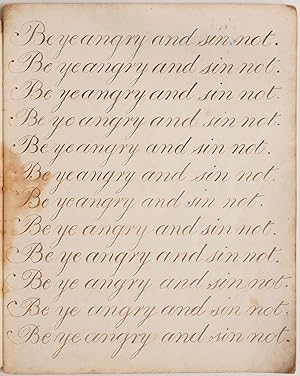 Be ye angry and sin not.
Be ye angry and sin not.
Be ye angry and sin not.
Be ye angry and sin not.
Be ye angry and sin not.
Be ye angry and sin not.
Be ye angry and sin not.
Be ye angry and sin not.
Be ye angry and sin not.
Be ye angry and sin not.
Be ye angry and sin not.
Be ye angry and sin not.